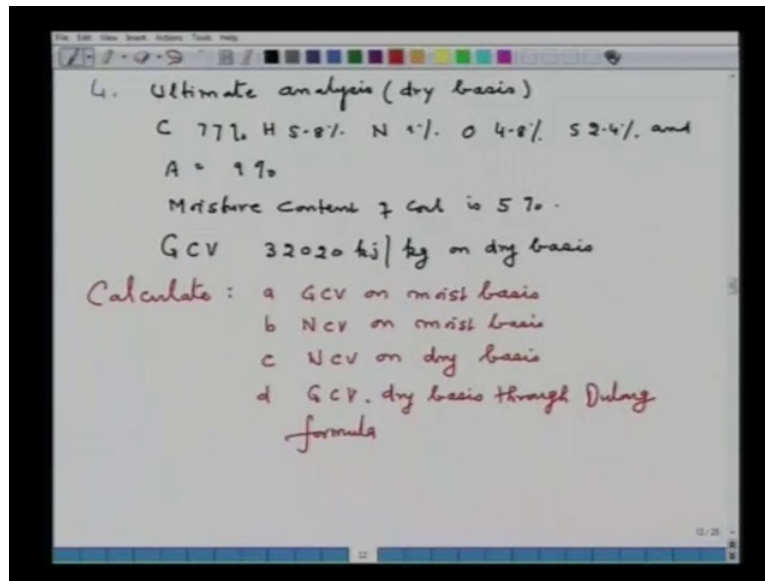 File Edit View Insert Actions Tools Help
4. Ultimate analysis (dry basis)
C 77% H 5.8% N 1% O 4.8% S 2.4% and
A = 9%
Moisture content of coal is 5%.
GCV 32020 kj/kg on dry basis
Calculate: a GCV on moist basis
b NCV on moist basis
c NCV on dry basis
d GCV. dry basis through Dulong
formula
12/25
12